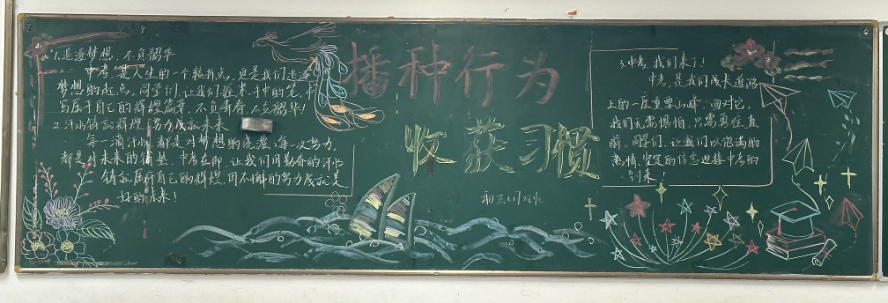 1.追逐梦想,不负韶华
中考,是人生的一个转折点,更是我们追逐
梦想的起点。同学们,让我们握紧手中的笔,书
写属于自己的辉煌篇章,不负青春,不负韶华!
2.汗水铸就辉煌,努力成就未来
每一滴汗水都是对梦想的浇灌,每一次努力,
都是对未来的铺垫。中考在即,让我们用勤奋的汗水
铸就属于自己的辉煌,用不懈的努力成就美
好的未来!
播种行为
收获习惯
初三(1)班
3.中考,我们来了!
中考,是我们成长道路
上的一座重要山峰。面对它,
我们无需惧怕,只需勇往直
前。同学们,让我们以饱满的
热情,坚定的信念迎接中考的
到来!